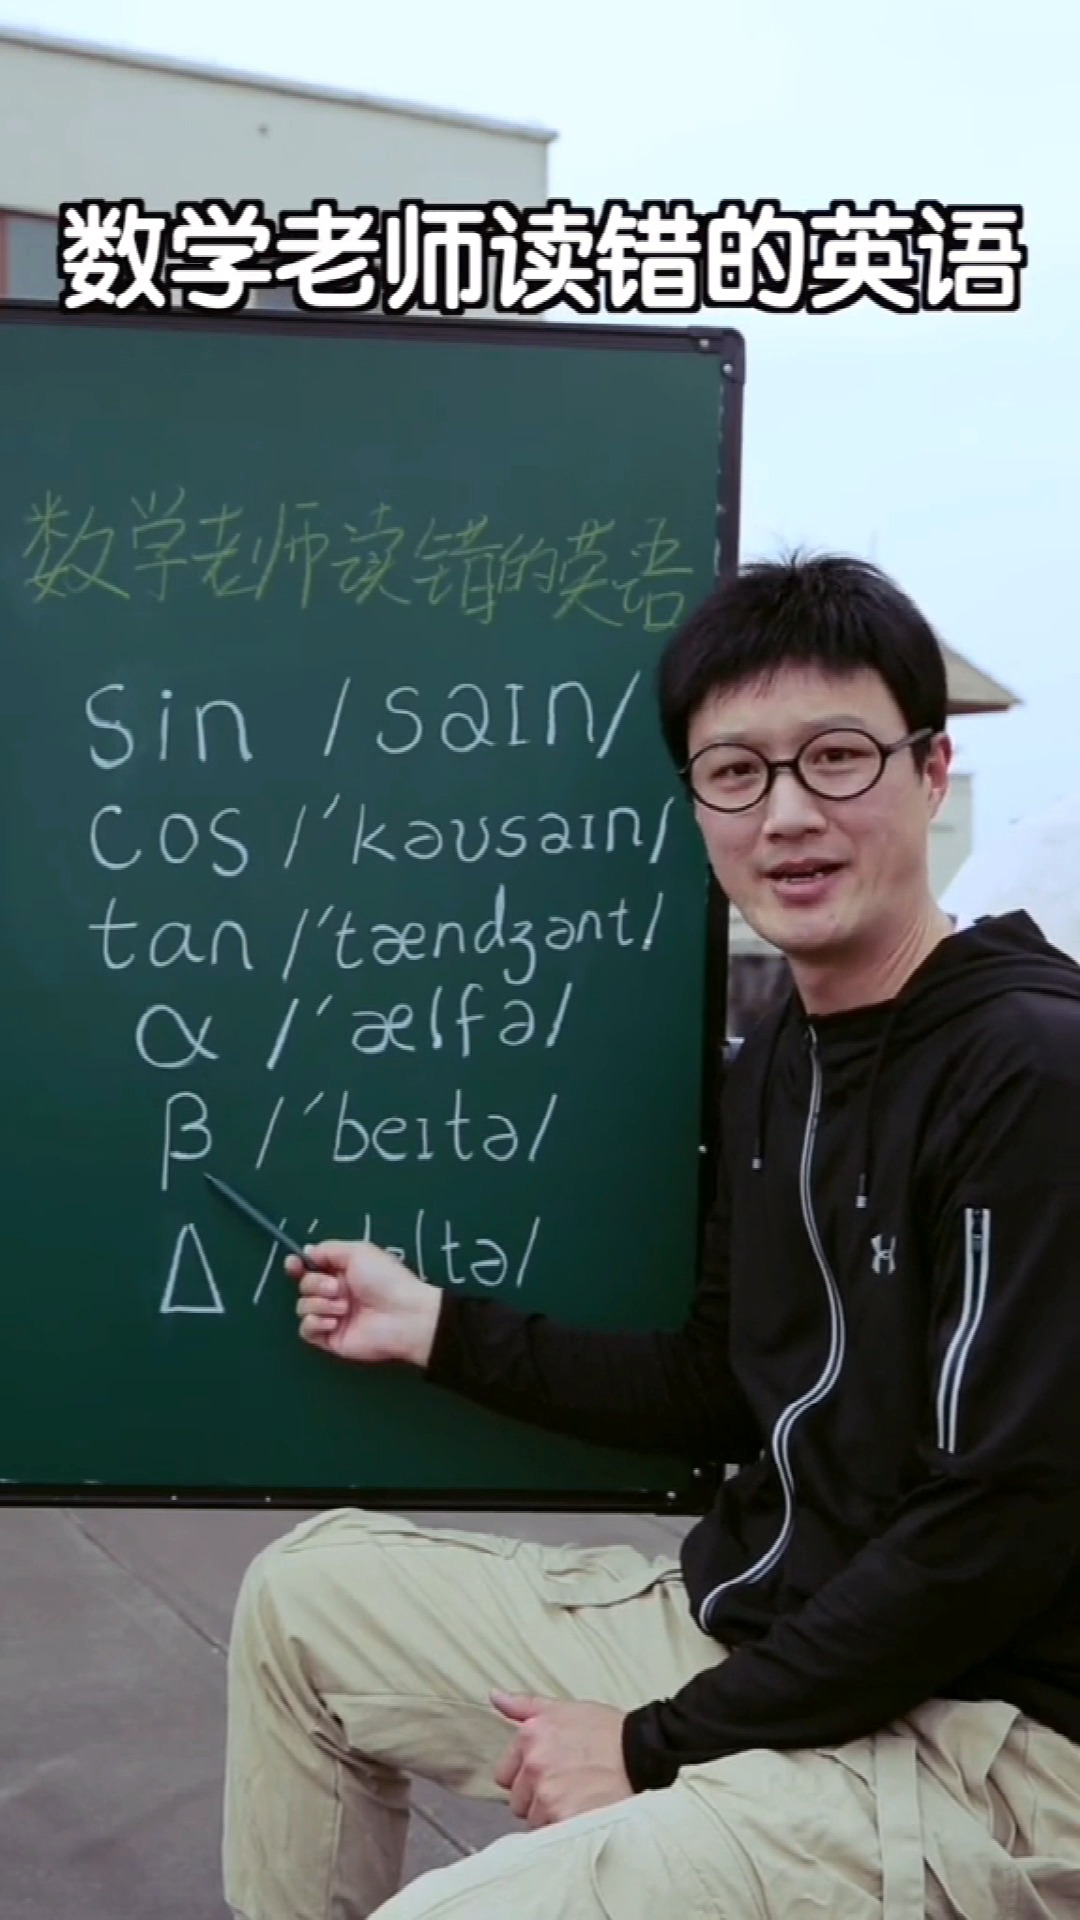 数学老师读错的英语
数学老师读错的英语
sin /saɪn/
cos /ˈkəʊsaɪn/
tan /ˈtændʒənt/
α /ˈælfə/
β /ˈbeɪtə/
Δ